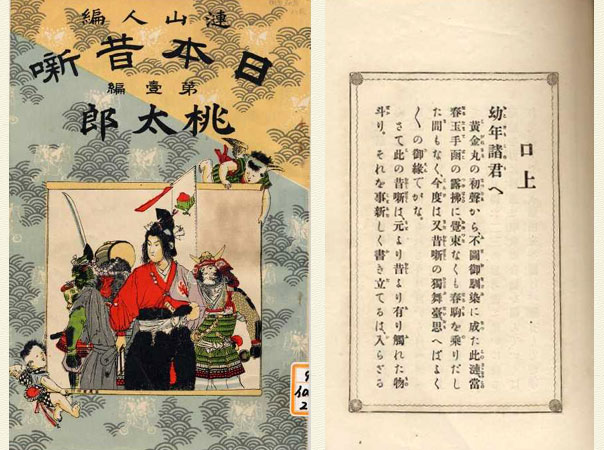 漣山人編
日本昔噺
第壹編
桃太郎
口上
幼年諸君へ
黄金丸の初聲から、不圖御馴染に成た此漣、當
春玉手函の露拂に、覺束なくも春駒を乗りだし
た間もなく、今度は又昔噺の獨舞臺、思へばよく
〱の御縁でがな。
さて此の昔噺は、元より昔より有り觸れた物
斗り、それを事新しく書き立てるは、入らざる